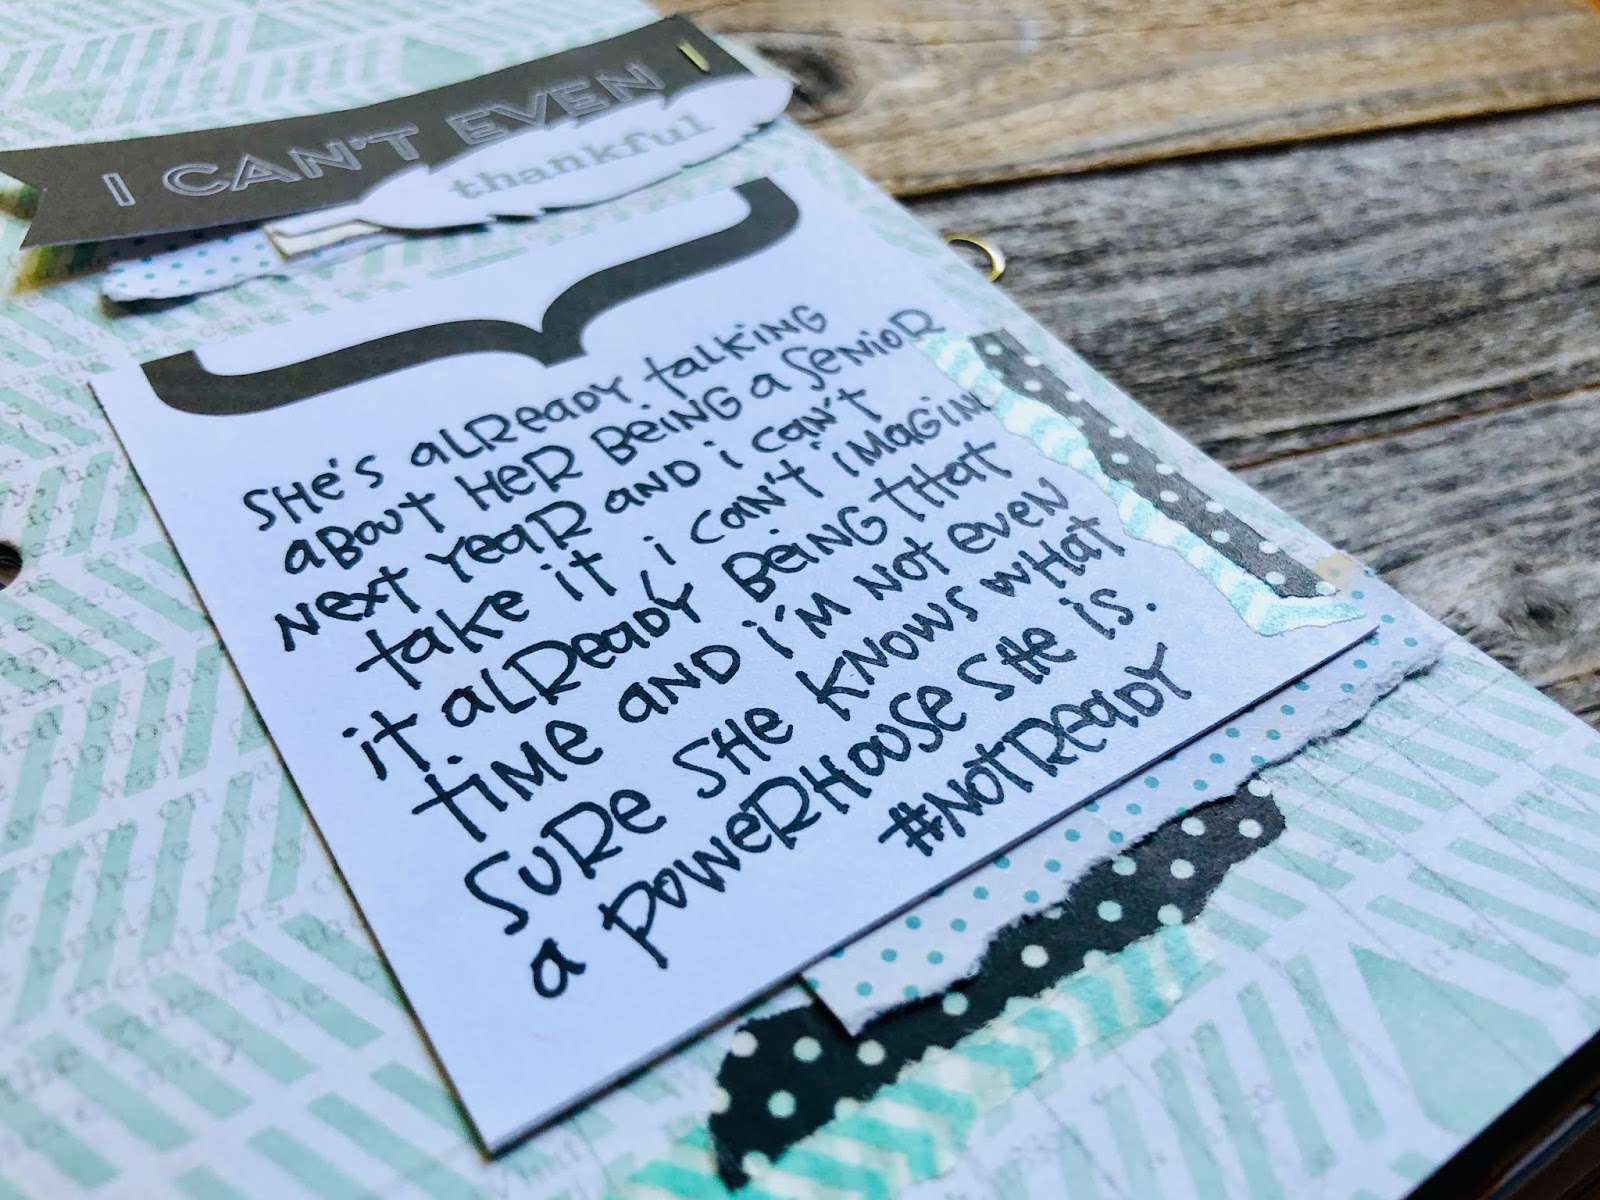 I CAN'T EVEN
thankful
SHe's aLReaDY taLKING
aBOUT HeR BeiNG a SeNiOR
NeXT YeaR AND i can't
take it i can't iMaGiN
it aLReaDY BeiNG tHat
tiMe AND i'M NOT eveN
SURe SHe KNOWS wHat
a POWeRHOUSe SHe iS.
#NOTReaDY